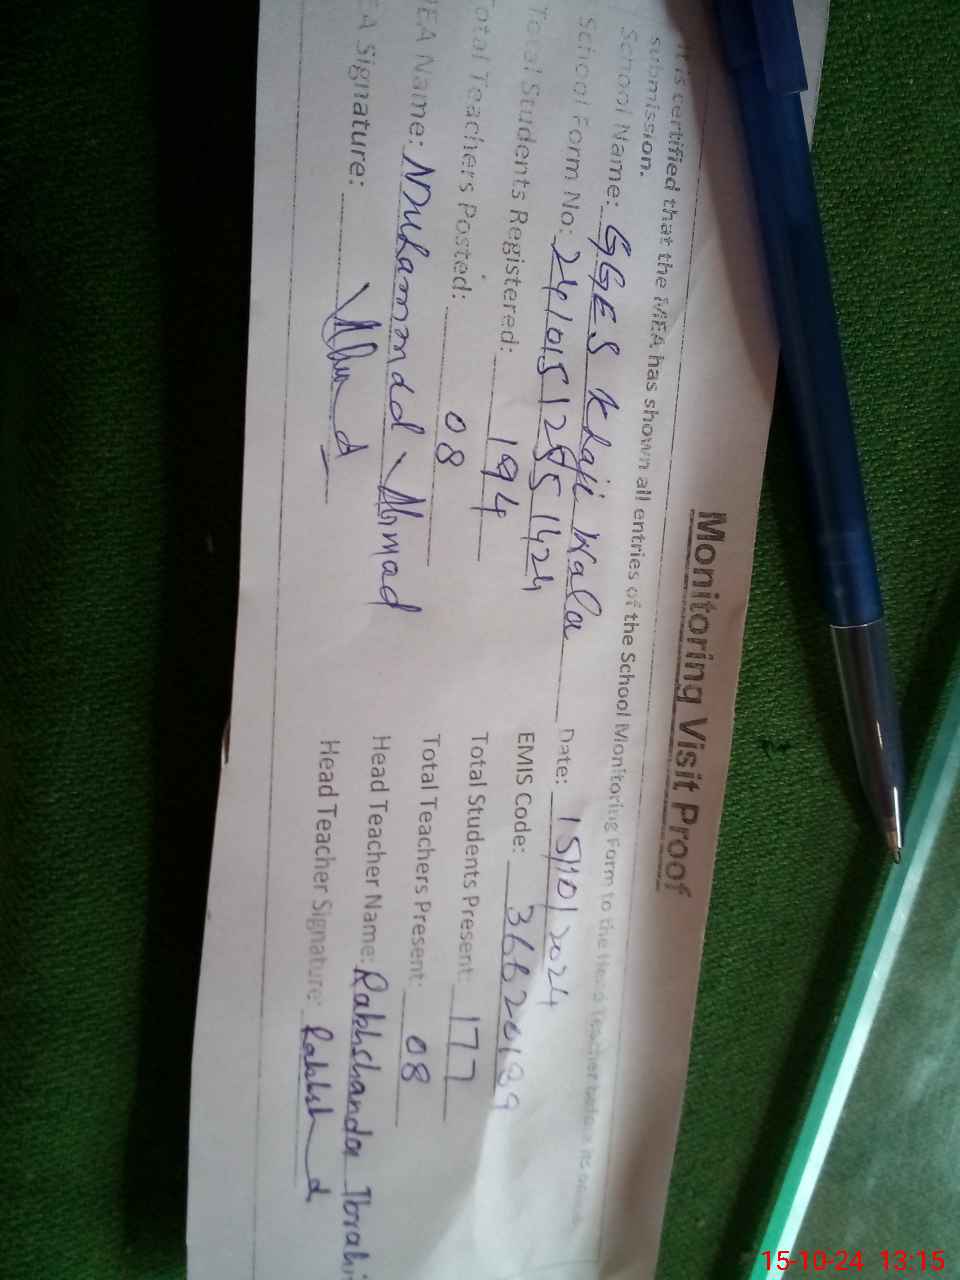 Monitoring Visit Proof
It is certified that the MEA has shown all entries of the School Monitoring Form to the Head Teacher before its
submission.
School Name: GGES Khaji Wala Date: 15/10/2024
School Form No: 24101512551424 EMIS Code: 36620189
Total Students Registered: 194 Total Students Present: 177
Total Teachers Posted: 08 Total Teachers Present: 08
MEA Name: Muhammad Ahmad Head Teacher Name: Rakhshanda Ibrahi
EA Signature: Ahmad Head Teacher Signature: Rakhsh
15-10-24 13:15